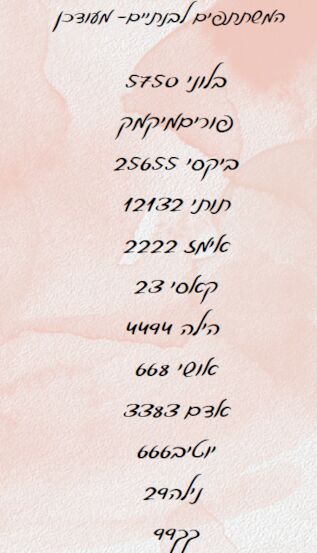 המשתתפים לבנתיים- מעודכן
בלוני 5750
פוריםמיקמק
ביקסי 25655
תותי 12132
אימז 2222
קאסי 23
הילה 4494
אושי 668
אדם 3383
יוטיב666
נילה29
ככ99